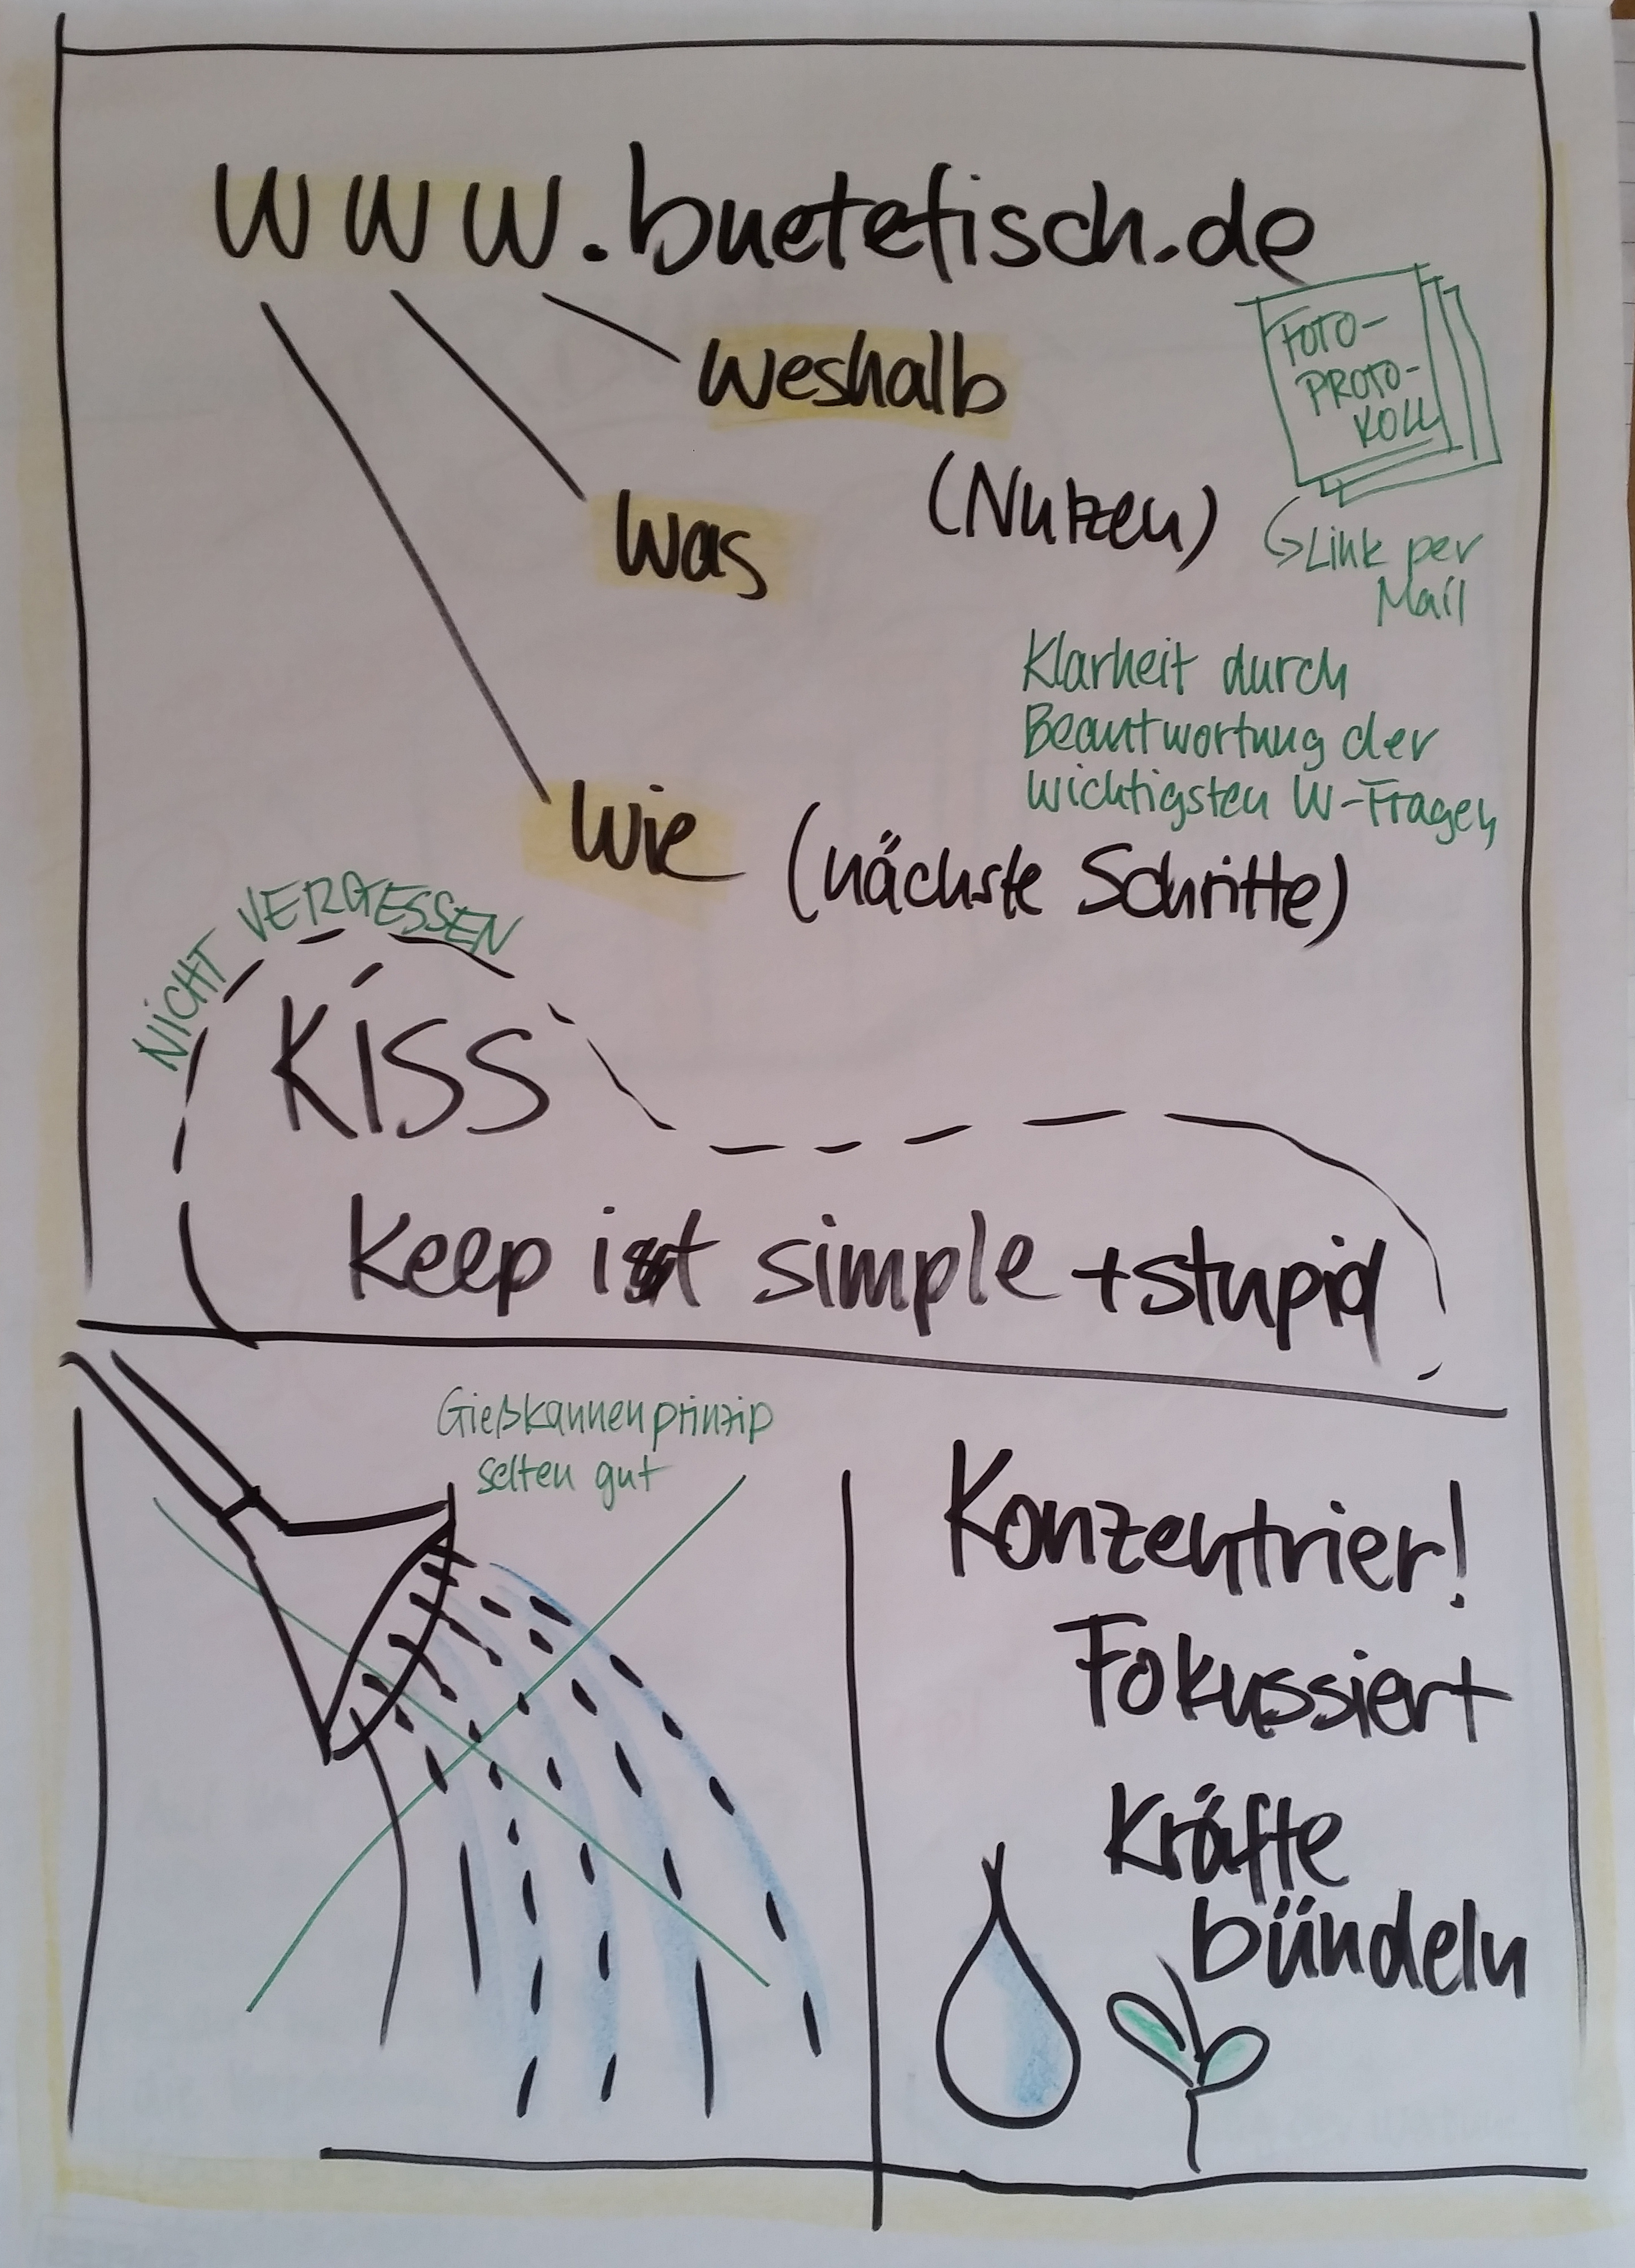 www.buetefisch.de
FOTO-
PROTO-
KOLL
weshalb
(Nutzen)
Was
Link per
Mail
Klarheit durch
Beantwortung der
wichtigsten W-Fragen
Wie (nächste Schritte)
NICHT VERGESSEN
KISS
Keep it simple + stupid
Gießkannenprinzip
selten gut
Konzentrier!
Fokussiert
Kräfte
bündeln